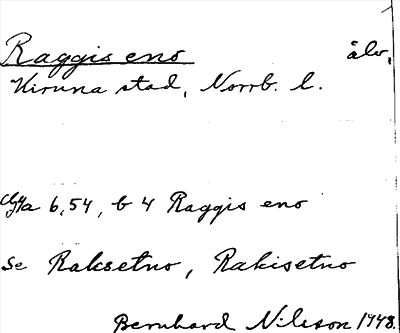 Raggis eno älv,
Kiruna stad, Norrb. l.
6,54, b 4 Raggis eno
Se Raksetno, Rakisetno
Bernhard Nilsson 1948.